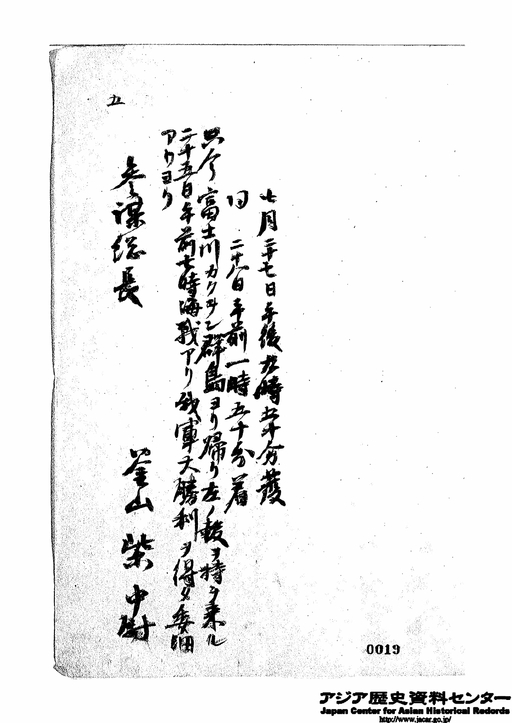 五
七月二十七日午後九時五十分發
同 二十八日午前一時五十分着
只今富士川カクヲン群島ヨリ歸リ左ノ報ヲ持タ来ル
二十五日午前七時海戰アリ我軍大勝利ヲ得タ委細
アトヨリ
釜山 柴中尉
參謀総長
0019
アジア歴史資料センター
Japan Center for Asian Historical Records
http://www.jacar.go.jp/